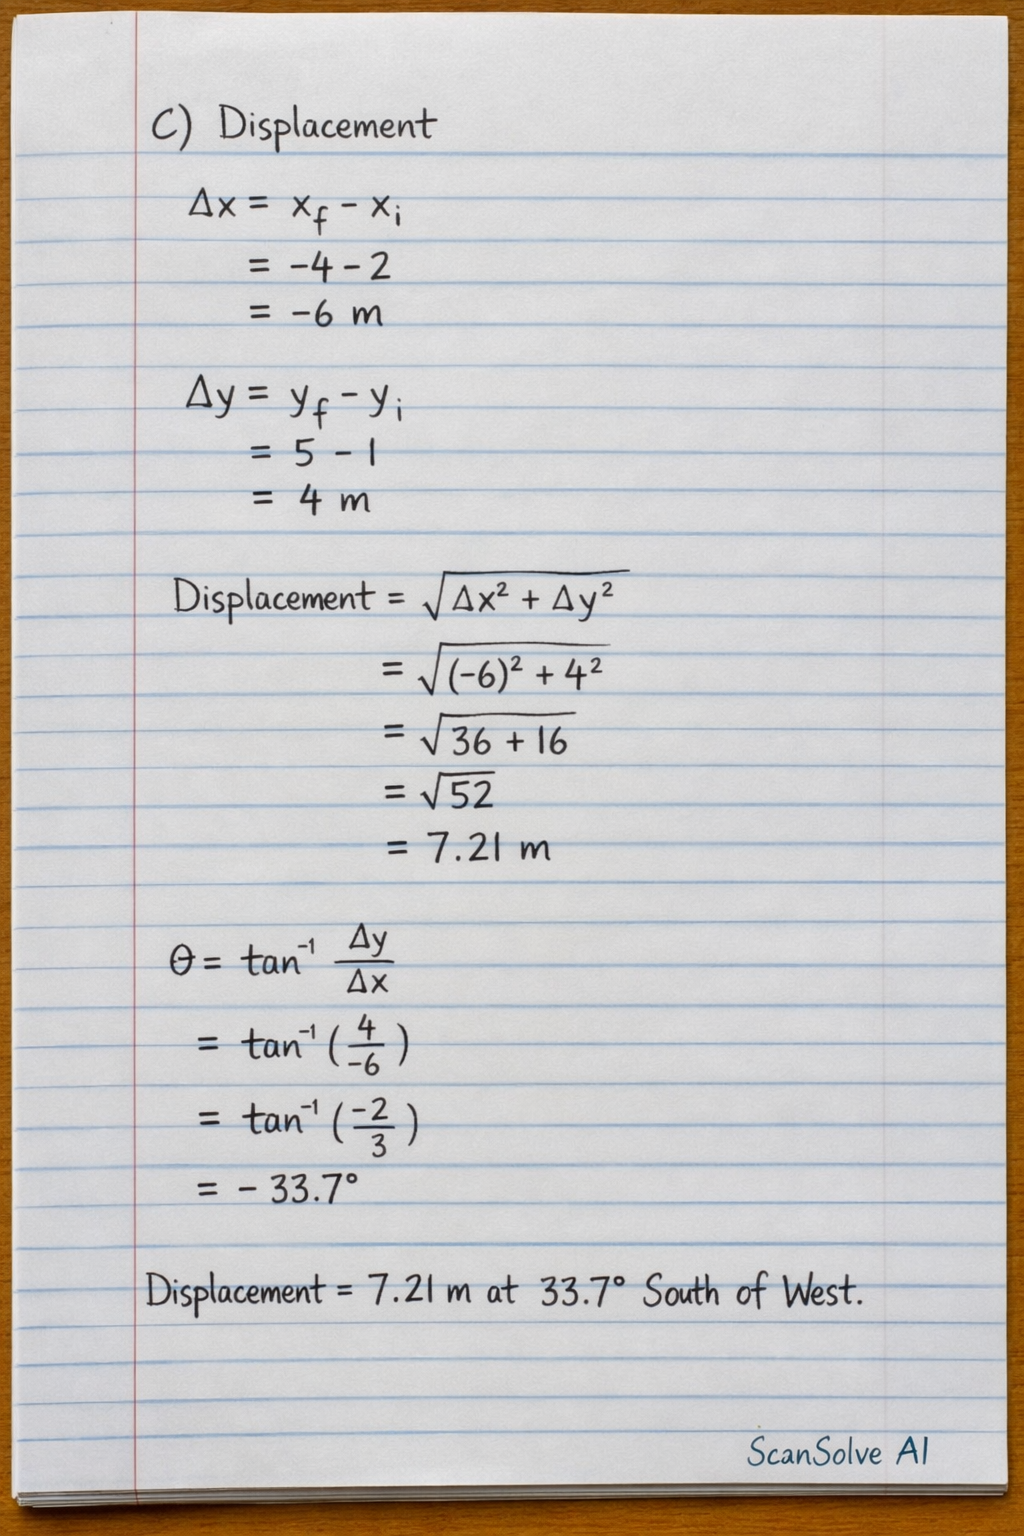 C) Displacement
Δx = x_f - x_i
= -4 - 2
= -6 m
Δy = y_f - y_i
= 5 - 1
= 4 m
Displacement = √(Δx² + Δy²)
= √((-6)² + 4²)
= √(36 + 16)
= √52
= 7.21 m
θ = tan⁻¹ Δy/Δx
= tan⁻¹ (4/-6)
= tan⁻¹ (-2/3)
= - 33.7°
Displacement = 7.21 m at 33.7° South of West.
ScanSolve AI